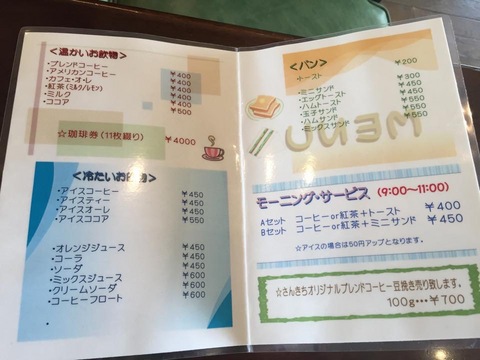 <温かいお飲物>
・ブレンドコーヒー ¥400
・アメリカンコーヒー ¥400
・カフェ・オ・レ ¥400
・紅茶(ミルク/レモン) ¥400
・ミルク ¥400
・ココア ¥500
☆珈琲券(11枚綴り) ¥4000
<冷たいお飲物>
・アイスコーヒー ¥450
・アイスティー ¥450
・アイスオーレ ¥450
・アイスココア ¥550
・オレンジジュース ¥450
・コーラ ¥450
・ソーダ ¥450
・ミックスジュース ¥600
・クリームソーダ ¥600
・コーヒーフロート ¥600
<パン>
・トースト ¥200
・ミニサンド ¥300
・エッグトースト ¥450
・ハムトースト ¥450
・玉子サンド ¥550
・ハムサンド ¥550
・ミックスサンド ¥550
MENU
モーニング・サービス (9:00~11:00)
Aセット コーヒーor紅茶+トースト ¥400
Bセット コーヒーor紅茶+ミニサンド ¥450
☆アイスの場合は50円アップとなります。
☆さんきちオリジナルブレンドコーヒー豆挽き売り致します。
100g・・・¥700